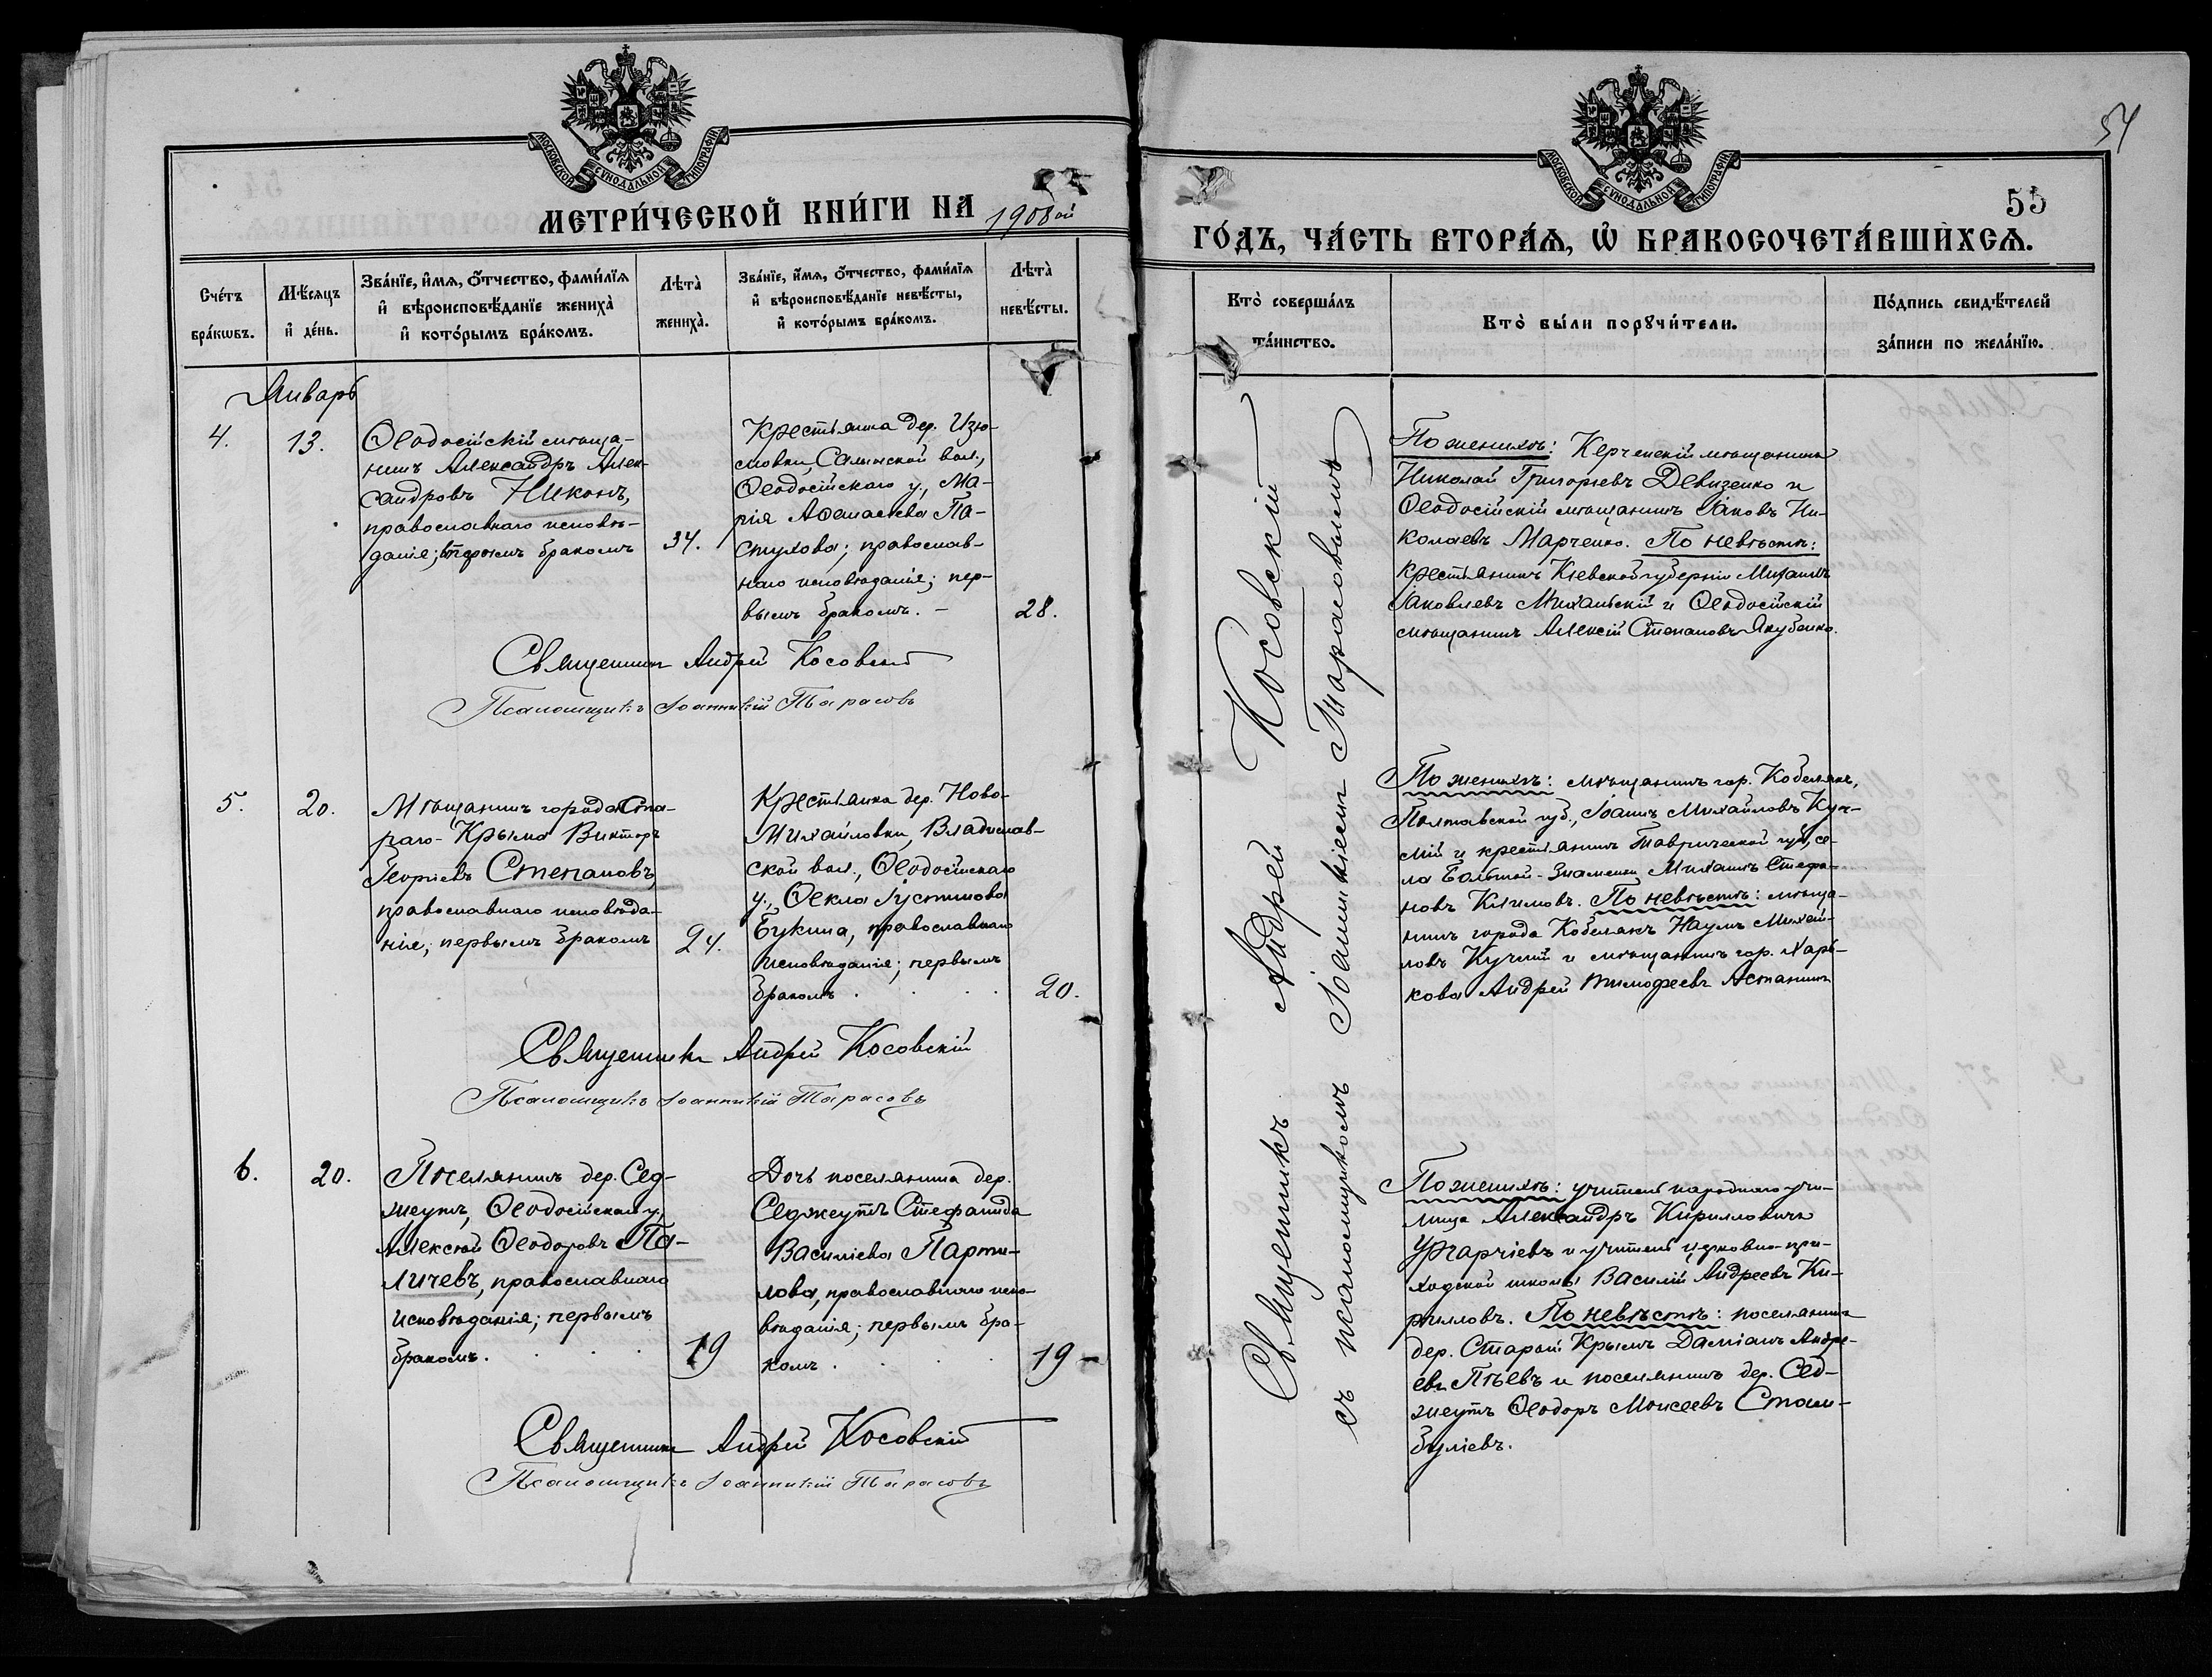 МОСКОВСКОЙ СѴНОДАЛЬНОЙ ТИПОГРАФІИ
МЕТРИ́ЧЕСКОЙ КНИ́ГИ НА 1908ой
Сче́тъ бра́кѡвъ.
Мѣ́сяцъ и҆ де́нь.
Зва́нїе, и҆́мѧ, ѻ҆́тчество, фами́лїѧ
и҆ вѣроисповѣ́данїе жениха̀
и҆ кото́рымъ бра́комъ.
Лѣта̀ жениха̀.
Зва́нїе, и҆́мѧ, ѻ҆́тчество, фами́лїѧ
и҆ вѣроисповѣ́данїе невѣ́сты,
и҆ кото́рымъ бра́комъ.
Лѣта̀ невѣ́сты.
Январь
4.
13.
Ѳеодосійскій мѣща-
нинъ Александръ Алек-
сандровъ Никонъ,
православнаго исповѣ-
данія; вторымъ бракомъ
34.
Крестьянка дер. Изю-
мовки, Салынской вол.,
Ѳеодосійскаго у., Ма-
рія Аѳанасьева Па-
стухова; православ-
наго исповѣданія; пер-
вымъ бракомъ. –
28.
Священникъ Андрей Косовскій
Псаломщикъ Іоанникій Тарасовъ
5.
20.
Мѣщанинъ города Ста-
раго-Крыма Викторъ
Георгіевъ Степановъ,
православнаго исповѣда-
нія; первымъ бракомъ
24.
Крестьянка дер. Ново-
Михайловки, Владислав-
ской вол., Ѳеодосійскаго
у., Ѳекла Іустинова
Букина, православнаго
исповѣданія; первымъ
бракомъ.
20.
Священникъ Андрей Косовскій
Псаломщикъ Іоанникій Тарасовъ
6.
20.
Поселянинъ дер. Сед-
жеутъ, Ѳеодосійскаго у.,
Алексѣй Ѳеодоровъ Па-
личевъ, православнаго
исповѣданія; первымъ
бракомъ.
19
Дочь поселянина дер.
Седжеутъ Стефанида
Василіева Парти-
лова, православнаго испо-
вѣданія; первымъ бра-
комъ.
19
Священникъ Андрей Косовскій
Псаломщикъ Іоанникій Тарасовъ
54
МОСКОВСКОЙ СѴНОДАЛЬНОЙ ТИПОГРАФІИ
55
ГО́ДЪ, ЧА́СТЬ ВТОРА́Ѧ, Ѡ҆ БРАКОСОЧЕТА́ВШИХСѦ.
Кто̀ соверша́лъ
та́инство.
Кто̀ бы́ли порꙋчи́тели.
По́дпись свидѣ́телей
за́писи по жела́нїю.
Священникъ Андрей Косовскій
съ псаломщикомъ Іоанникіемъ Тарасовымъ
По женихѣ: Керченскій мѣщанинъ
Николай Григорьевъ Девизенко и
Ѳеодосійскій мѣщанинъ Іаковъ Ни-
колаевъ Марченко. По невѣстѣ:
крестьянинъ Кіевской губерніи Михаилъ
Іаковлевъ Михальскій и Ѳеодосійскій
мѣщанинъ Алексій Степановъ Якубенко.
По женихѣ: мѣщанинъ гор. Кобелякъ,
Полтавской губ., Іоаннъ Михайловъ Куч-
мій и крестьянинъ Таврической губ., се-
ла Большой-Знаменки Михаилъ Стефа-
новъ Климовъ. По невѣстѣ: мѣща-
нинъ города Кобелякъ Наумъ Михай-
ловъ Кучмій и мѣщанинъ гор. Харь-
кова Андрей Тимофеевъ Астанинъ
По женихѣ: учитель народнаго учи-
лища Александръ Кирилловичъ
Ургарчіевъ и учитель церковно-при-
ходской школы Василій Андреевъ Ки-
рилловъ. По невѣстѣ: поселянинъ
дер. Старый Крымъ Даміанъ Андре-
евъ Птьевъ и поселянинъ дер. Сед-
жеутъ Ѳеодоръ Моисеевъ Стам-
буліевъ.